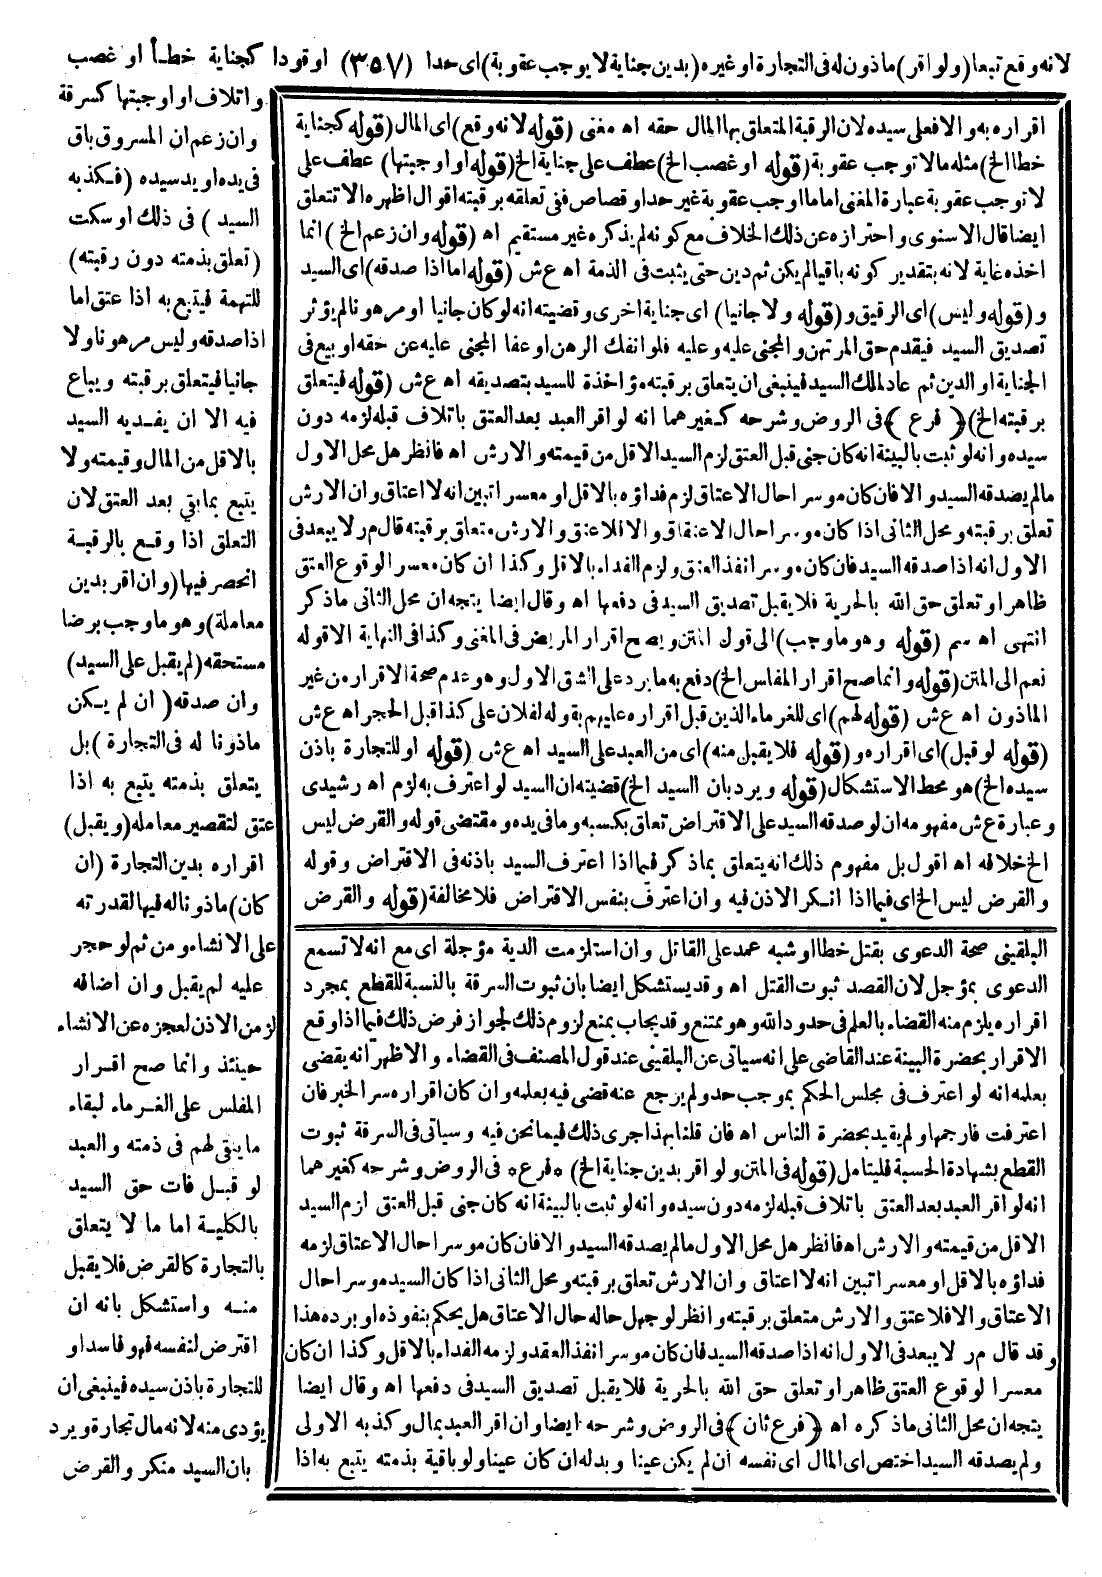 لانه وقع تبعا (ولو اقر) ماذون له فى التجارة او غيره (بدين جناية لا يوجب عقوبة) اى حدا (٣٥٧) او قودا كجناية خطأ او غصب
واتلاف او اوجبتها كسرقة
وان زعم ان المسروق باق
فى يده او يد سيده (فكذبه
السيد) فى ذلك او سكت
(تعلق بذمته دون رقبته)
للتهمة فيتبع به اذا عتق اما
اذا صدقه وليس مرهونا ولا
جانيا فيتعلق برقبته ويباع
فيه الا ان يفديه السيد
بالاقل من المال وقيمته ولا
يتبع بما بقى بعد العتق لان
التعلق اذا وقع بالرقبة
انحصر فيها (وان اقر بدين
معاملة) وهو ما وجب برضا
مستحقه (لم يقبل على السيد)
وان صدقه (ان لم يكن
ماذونا له فى التجارة) بل
يتعلق بذمته يتبع به اذا
عتق لتقصير معامله (ويقبل)
اقراره بدين التجارة (ان
كان) ماذونا له فيها لقدرته
على الانشاء ومن ثم لو حجر
عليه لم يقبل وان اضافه
لزمن الاذن لعجزه عن الانشاء
حينئذ وانما صح اقرار
المفلس على الغرماء لبقاء
ما يبقى لهم فى ذمته والعبد
لو قبل فات حق السيد
بالكلية اما ما لا يتعلق
بالتجارة كالقرض فلا يقبل
منه واستشكل بانه ان
اقترض لنفسه فهو فاسد او
للتجارة باذن سيده فينبغى ان
يؤدى منه لانه مال تجارة ويرد
بان السيد منكر والقرض
اقراره به والا فعلى سيده لان الرقبة المتعلق بها المال حقه اه مغنى (قوله لانه وقع) اى المال (قوله كجناية
خطا الخ) مثله ما لا توجب عقوبة (قوله او غصب الخ) عطف على جناية الخ (قوله او اوجبتها) عطف على
لا توجب عقوبة عبارة المغنى اما ما اوجب عقوبة غير حد او قصاص ففى تعلقه برقبته اقوال اظهره الا تتعلق
ايضا قال الاسنوى واحترازه عن ذلك الخلاف مع كونه لم يذكره غير مستقيم اه (قوله وان زعم الخ) انما
اخذه غاية لانه بتقدير كونه باقيا لم يكن ثم دين حتى يثبت فى الذمة اه ع ش (قوله اما اذا صدقه) اى السيد
و(قوله وليس) اى الرقيق و(قوله ولا جانيا) اى جناية اخرى وقضيته انه لو كان جانيا او مرهونا لم يؤثر
تصديق السيد فيقدم حق المرتهن والمجنى عليه وعليه فلو انفك الرهن او عفا المجنى عليه عن حقه او بيع فى
الجناية او الدين ثم عاد لملك السيد فينبغى ان يتعلق برقبته مؤاخذة للسيد بتصديقه اه ع ش (قوله فيتعلق
برقبته الخ) (فرع) فى الروض وشرحه كغيرهما انه لو اقر العبد بعد العتق باتلاف قبله لزمه دون
سيده وانه لو ثبت بالبينة انه كان جنى قبل العتق لزم السيد الاقل من قيمته والارش اه فانظر هل محل الاول
ما لم يصدقه السيد والا فان كان موسرا حال الاعتاق لزم فداؤه بالاقل او معسرا تبين انه لا اعتاق وان الارش
تعلق برقبته ومحل الثانى اذا كان موسرا حال الاعتاق والا فلا عتق والارش متعلق برقبته قال م ر لا يبعد فى
الاول انه اذا صدقه السيد فان كان موسرا نفذ العتق ولزم الفداء بالاقل وكذا ان كان معسرا لوقوع العتق
ظاهرا وتعلق حق الله بالحرية فلا يقبل تصديق السيد فى دفعها اه وقال ايضا يتجه ان محل الثانى ما ذكر
انتهى اه سم (قوله وهو ما وجب) الى قول المتن ويصح اقرار المريض فى المغنى وكذا فى النهاية الا قوله
نعم الى المتن (قوله وانما صح اقرار المفلس الخ) دفع به ما يرد على الشق الاول وهو عدم صحة الاقرار من غير
الماذون اه ع ش (قوله لهم) اى للغرماء الذين قبل اقراره عليهم بقوله لفلان على كذا قبل الحجر اه ع ش
(قوله لو قبل) اى اقراره و(قوله فلا يقبل منه) اى من العبد على السيد اه ع ش (قوله او للتجارة باذن
سيده الخ) هو محط الاستشكال (قوله ويرد بان السيد الخ) قضيته ان السيد لو اعترف به لزم اه رشيدى
وعبارة ع ش مفهومه ان لو صدقه السيد على الاقتراض تعلق بكسبه وما فى يده ومقتضى قوله والقرض ليس
الخ خلافه اه اقول بل مفهوم ذلك انه يتعلق بما ذكر فيما اذا اعترف السيد باذنه فى الاقتراض وقوله
والقرض ليس الخ اى فيما اذا انكر الاذن فيه وان اعترف بنفس الاقتراض فلا مخالفة (قوله والقرض
البلقينى صحة الدعوى بقتل خطا او شبه عمد على القاتل وان استلزمت الدية مؤجلة اى مع انه لا تسمع
الدعوى بمؤجل لان القصد ثبوت القتل اه وقد يستشكل ايضا بان ثبوت السرقة بالنسبة للقطع بمجرد
اقراره يلزم منه القضاء بالعلم فى حدود الله وهو ممتنع وقد يجاب بمنع لزوم ذلك لجواز فرض ذلك فيما اذا وقع
الاقرار بحضرة البينة عند القاضى على انه سياتى عن البلقينى عند قول المصنف فى القضاء والاظهر انه يقضى
بعلمه انه لو اعترف فى مجلس الحكم بموجب حد ولم يرجع عنه قضى فيه بعلمه وان كان اقراره سرا لخبر فان
اعترفت فارجمها ولم يقيد بحضرة الناس اه فان قلنا بهذا جرى ذلك فيما نحن فيه وسياتى فى السرقة ثبوت
القطع بشهادة الحسبة فليتامل (قوله فى المتن ولو اقر بدين جناية الخ) *فرع* فى الروض وشرحه كغيرهما
انه لو اقر العبد بعد العتق باتلاف قبله لزمه دون سيده وانه لو ثبت بالبينة انه كان جنى قبل العتق لزم السيد
الاقل من قيمته والارش اه فانظر هل محل الاول ما لم يصدقه السيد والا فان كان موسرا حال الاعتاق لزمه
فداؤه بالاقل او معسرا تبين انه لا اعتاق وان الارش تعلق برقبته ومحل الثانى اذا كان السيد موسرا حال
الاعتاق والا فلا عتق والارش متعلق برقبته وانظر لو جهل حاله حال الاعتاق هل يحكم بنفوذه او برده هذا
وقد قال م ر لا يبعد فى الاول انه اذا صدقه السيد فان كان موسرا نفذ العقد ولزمه الفداء بالاقل وكذا ان كان
معسرا لوقوع العتق ظاهرا وتعلق حق الله بالحرية فلا يقبل تصديق السيد فى دفعها اه وقال ايضا
يتجه ان محل الثانى ما ذكره اه (فرع ثان) فى الروض وشرحه ايضا وان اقر العبد بمال وكذبه الاولى
ولم يصدقه السيد اختص اى المال اى نفسه ان لم يكن عينا وبدله ان كان عينا ولو باقية بذمته يتبع به اذا